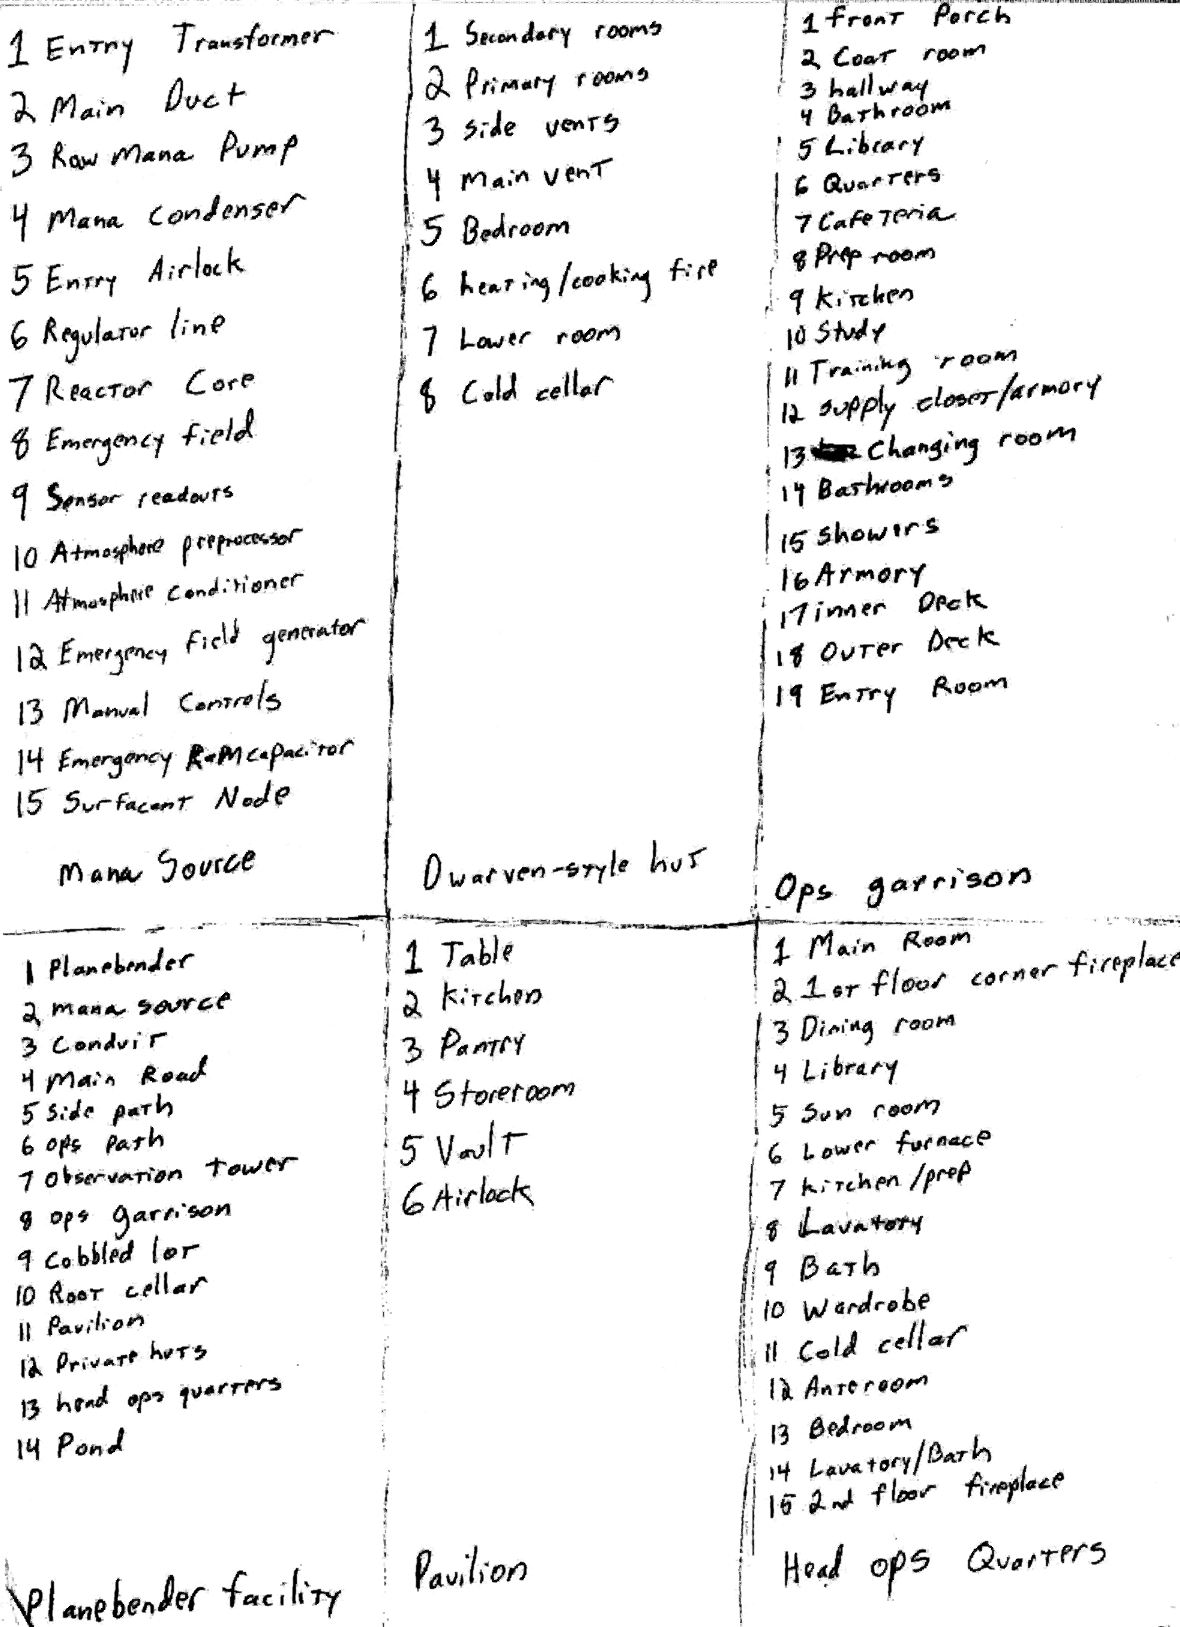 1 Entry Transformer
2 Main Duct
3 Raw Mana Pump
4 Mana Condenser
5 Entry Airlock
6 Regulator line
7 Reactor Core
8 Emergency field
9 Sensor readouts
10 Atmosphere preprocessor
11 Atmosphere conditioner
12 Emergency field generator
13 Manual Controls
14 Emergency RaM capacitor
15 Surfacant Node
Mana Source
1 Secondary rooms
2 Primary rooms
3 side vents
4 main vent
5 Bedroom
6 heating/cooking fire
7 Lower room
8 Cold cellar
Dwarven-style hut
1 front Porch
2 Coat room
3 hallway
4 Bathroom
5 Library
6 Quarters
7 Cafeteria
8 Prep room
9 Kitchen
10 Study
11 Training room
12 supply closet/armory
13 Changing room
14 Bathrooms
15 Showers
16 Armory
17 inner Deck
18 Outer Deck
19 Entry Room
Ops garrison
1 Planebender
2 mana source
3 Conduit
4 Main Road
5 Side path
6 ops path
7 Observation tower
8 ops garrison
9 Cobbled lot
10 Root cellar
11 Pavilion
12 Private huts
13 head ops quarters
14 Pond
Planebender facility
1 Table
2 Kitchen
3 Pantry
4 Storeroom
5 Vault
6 Airlock
Pavilion
1 Main Room
2 1st floor corner fireplace
3 Dining room
4 Library
5 Sun room
6 Lower furnace
7 Kitchen/prep
8 Lavatory
9 Bath
10 Wardrobe
11 Cold cellar
12 Anteroom
13 Bedroom
14 Lavatory/Bath
15 2nd floor fireplace
Head ops Quarters